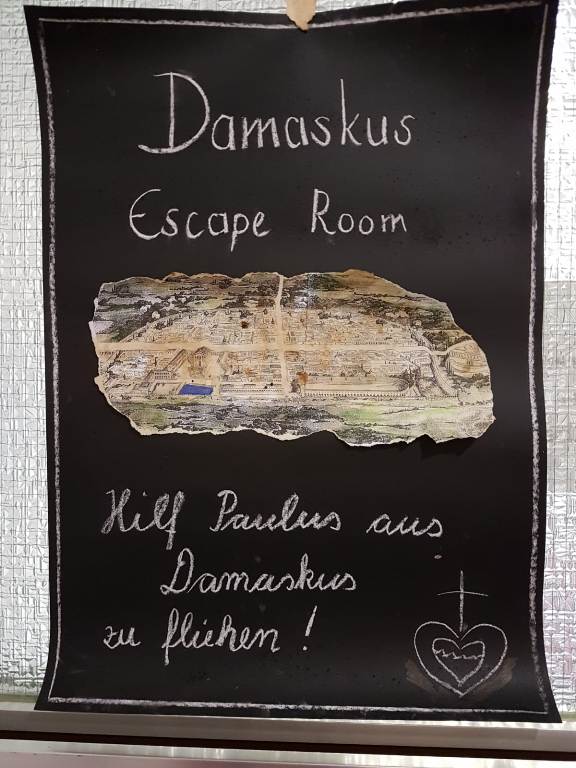 Damaskus
Escape Room
Hilf Paulus aus
Damaskus
zu fliehen!